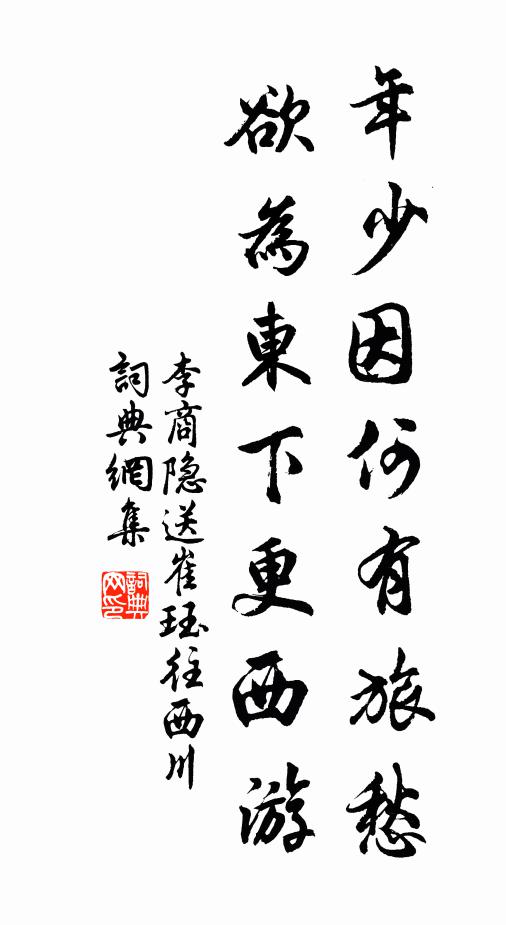 年少因何有旅愁
欲為東下更西游
李商隐送崔珏往西川
詞典網集
詞典网印